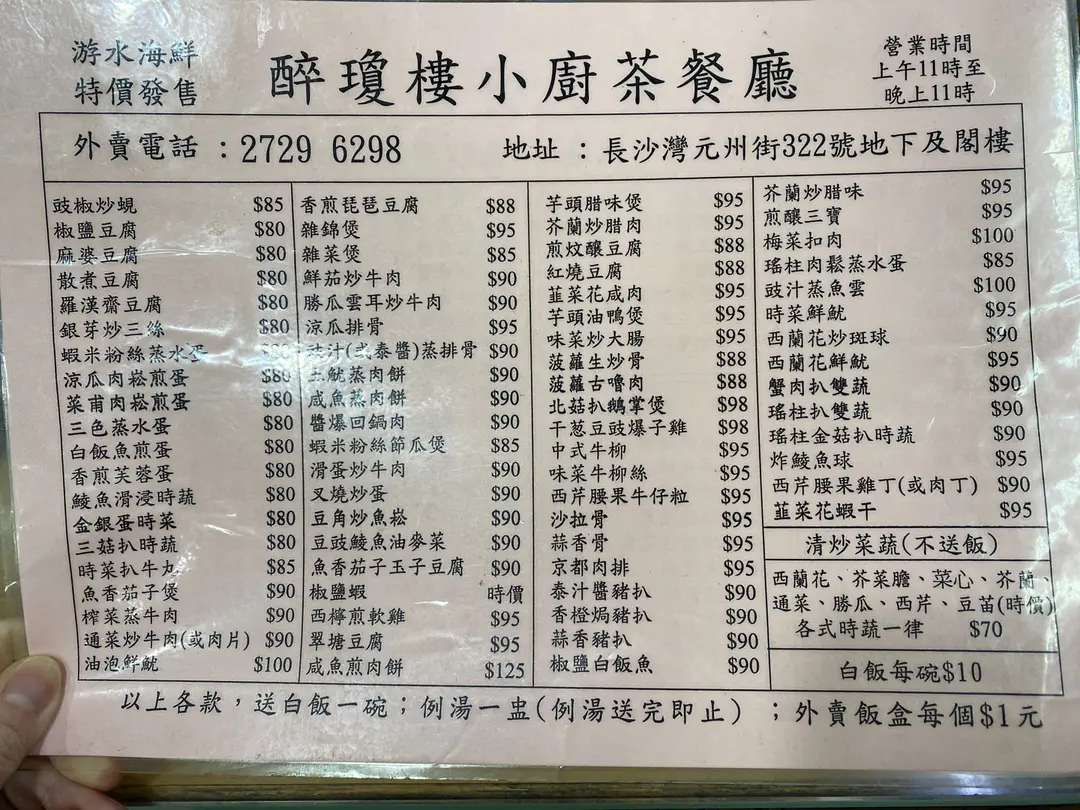 游水海鮮
特價發售
醉瓊樓小廚茶餐廳
營業時間
上午11時至
晚上11時
外賣電話：2729 6298
地址：長沙灣元州街322號地下及閣樓
豉椒炒蜆 $85
椒鹽豆腐 $80
麻婆豆腐 $80
散煮豆腐 $80
羅漢齋豆腐 $80
銀芽炒三絲 $80
蝦米粉絲蒸水蛋
涼瓜肉崧煎蛋 $80
菜甫肉崧煎蛋 $80
三色蒸水蛋 $80
白飯魚煎蛋 $80
香煎芙蓉蛋 $80
鯪魚滑浸時蔬 $80
金銀蛋時菜 $80
三菇扒時蔬 $80
時菜扒牛丸 $85
魚香茄子煲 $90
榨菜蒸牛肉 $90
通菜炒牛肉(或肉片) $90
油泡鮮魷 $100
香煎琵琶豆腐 $88
雜錦煲 $95
雜菜煲 $85
鮮茄炒牛肉 $90
勝瓜雲耳炒牛肉 $90
涼瓜排骨 $95
豉汁(或泰醬)蒸排骨 $90
土魷蒸肉餅 $90
咸魚蒸肉餅 $90
醬爆回鍋肉 $90
蝦米粉絲節瓜煲 $85
滑蛋炒牛肉 $90
叉燒炒蛋 $90
豆角炒魚崧 $90
豆豉鯪魚油麥菜 $90
魚香茄子玉子豆腐 $90
椒鹽蝦 時價
西檸煎軟雞 $95
翠塘豆腐 $95
咸魚煎肉餅 $125
芋頭腊味煲 $95
芥蘭炒腊肉 $95
煎炆釀豆腐 $88
紅燒豆腐 $88
韮菜花咸肉 $95
芋頭油鴨煲 $95
味菜炒大腸 $95
菠蘿生炒骨 $88
菠蘿古嚕肉 $88
北菇扒鵝掌煲 $98
干葱豆豉爆子雞 $98
中式牛柳 $95
味菜牛柳絲 $95
西芹腰果牛仔粒 $95
沙拉骨 $95
蒜香骨 $95
京都肉排 $95
泰汁醬豬扒 $90
香橙焗豬扒 $90
蒜香豬扒 $90
椒鹽白飯魚 $90
芥蘭炒腊味 $95
煎釀三寶 $95
梅菜扣肉 $100
瑤柱肉鬆蒸水蛋 $85
豉汁蒸魚雲 $100
時菜鮮魷 $95
西蘭花炒斑球 $90
西蘭花鮮魷 $95
蟹肉扒雙蔬 $90
瑤柱扒雙蔬 $90
瑤柱金菇扒時蔬 $90
炸鯪魚球 $95
西芹腰果雞丁(或肉丁) $90
韮菜花蝦干 $95
清炒菜蔬(不送飯)
西蘭花、芥菜膽、菜心、芥蘭、
通菜、勝瓜、西芹、豆苗(時價)
各式時蔬一律 $70
白飯每碗$10
以上各款，送白飯一碗；例湯一盅(例湯送完即止)；外賣飯盒每個$1元